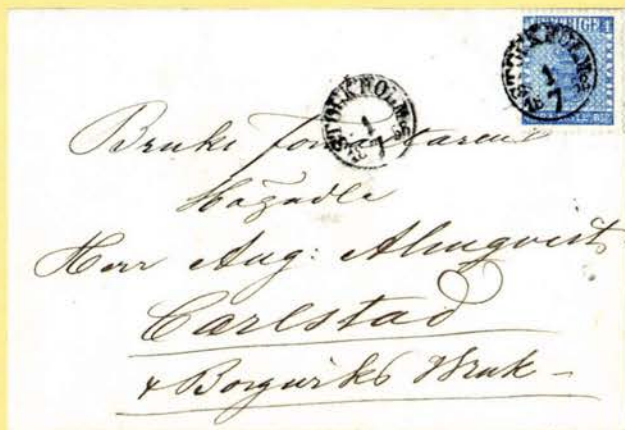 SVERIGE 4
STOCKHOLM
1
7
STOCKHOLM
1
7
Bruks
Högädle
Herr Aug: Almqvist
Carlstad
& Borgviks Bruk –